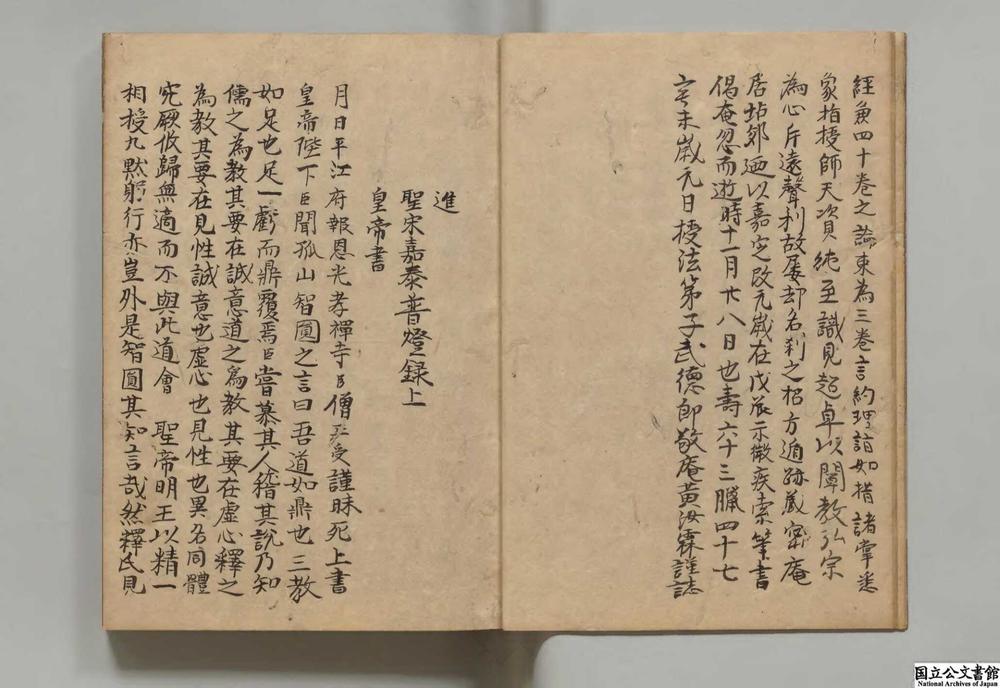 經兼四十卷之論束為三卷言約理詣如指諸掌悉
象指授師天資純至識見超卓以闡教弘宗
為心斥遠聲利故屢却名刹之招方遁跡藏密庵
居坫郊迺以嘉定改元歲在戊辰示微疾索筆書
偈奄忽而逝時十一月廿八日也壽六十三臘四十七
辛未歲元日授法第子武德郎敬庵黃汝霖謹誌
進
聖宋嘉泰普燈錄上
皇帝書
月日平江府報恩光孝禪寺臣僧正受謹昧死上書
皇帝陛下臣聞孤山智圓之言曰吾道如鼎也三教
如足也足一虧而鼎覆焉臣嘗慕其人稽其說乃知
儒之為教其要在誠意道之為教其要在虛心釋之
為教其要在見性誠意也虛心也見性也異名同體
究厥攸歸無適而不與此道會 聖帝明王以精一
相授允默躬行亦豈外是智圓其知言哉然釋氏見
国立公文書館
National Archives of Japan